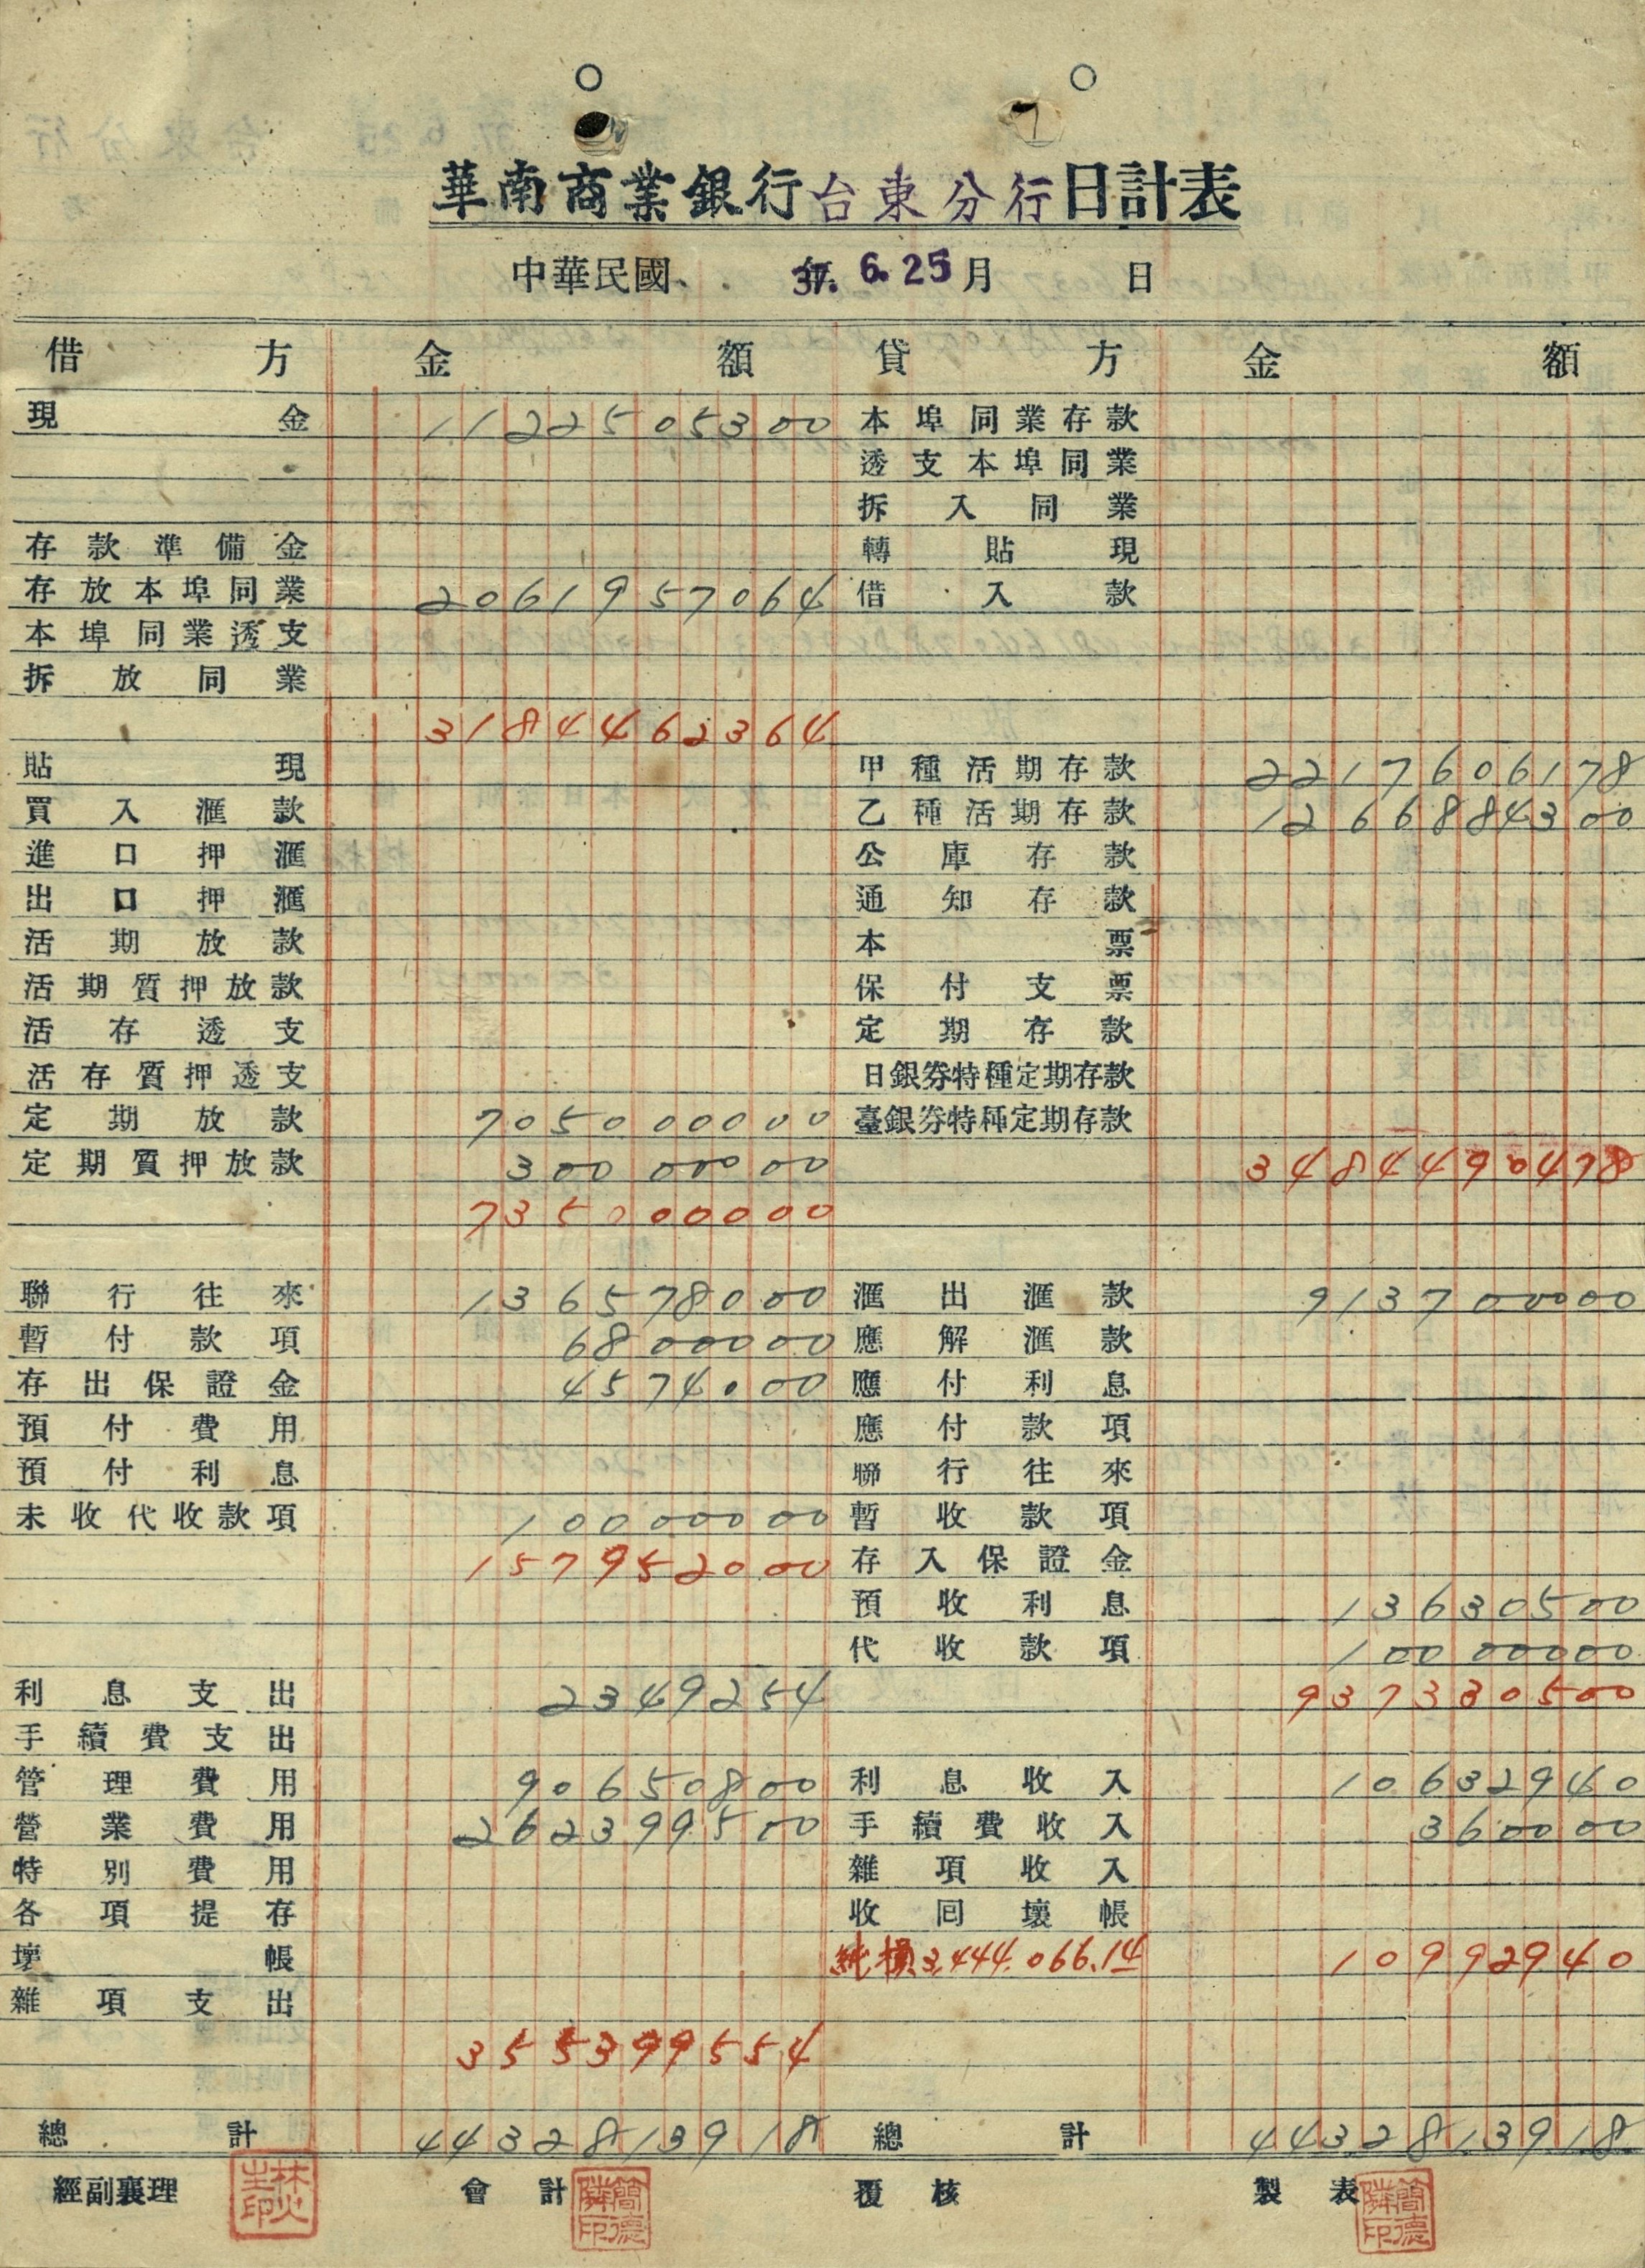 華南商業銀行台東分行日計表
中華民國 37年 6.25月 日
借方 金額 貸方 金額
現金 1122505300 本埠同業存款
透支本埠同業
拆入同業
存款準備金 轉貼現
存放本埠同業 2061957064 借入款
本埠同業透支
拆放同業
3184462364
貼現 甲種活期存款 2217606178
買入滙款 乙種活期存款 1266884300
進口押滙 公庫存款
出口押滙 通知存款
活期放款 本票
活期質押放款 保付支票
活存透支 定期存款
活存質押透支 日銀券特種定期存款
定期放款 705000000 臺銀券特種定期存款
定期質押放款 30000000 3484490478
735000000
聯行往來 136578000 滙出滙款 913700000
暫付款項 6800000 應解滙款
存出保證金 4574000 應付利息
預付費用 應付款項
預付利息 聯行往來
未收代收款項 10000000 暫收款項
157952000 存入保證金
預收利息 13630500
代收款項 10000000
利息支出 2349254 937330500
手續費支出
管理費用 90650800 利息收入 10632940
營業費用 262399500 手續費收入 360000
特別費用 雜項收入
各項提存 收回壞帳
壞帳 純損3,444,066.14 10992940
雜項支出
355399554
總計 4432813918 總計 4432813918
經副襄理 林火生印 會計 簡德隣印 覆核 製表 簡德隣印